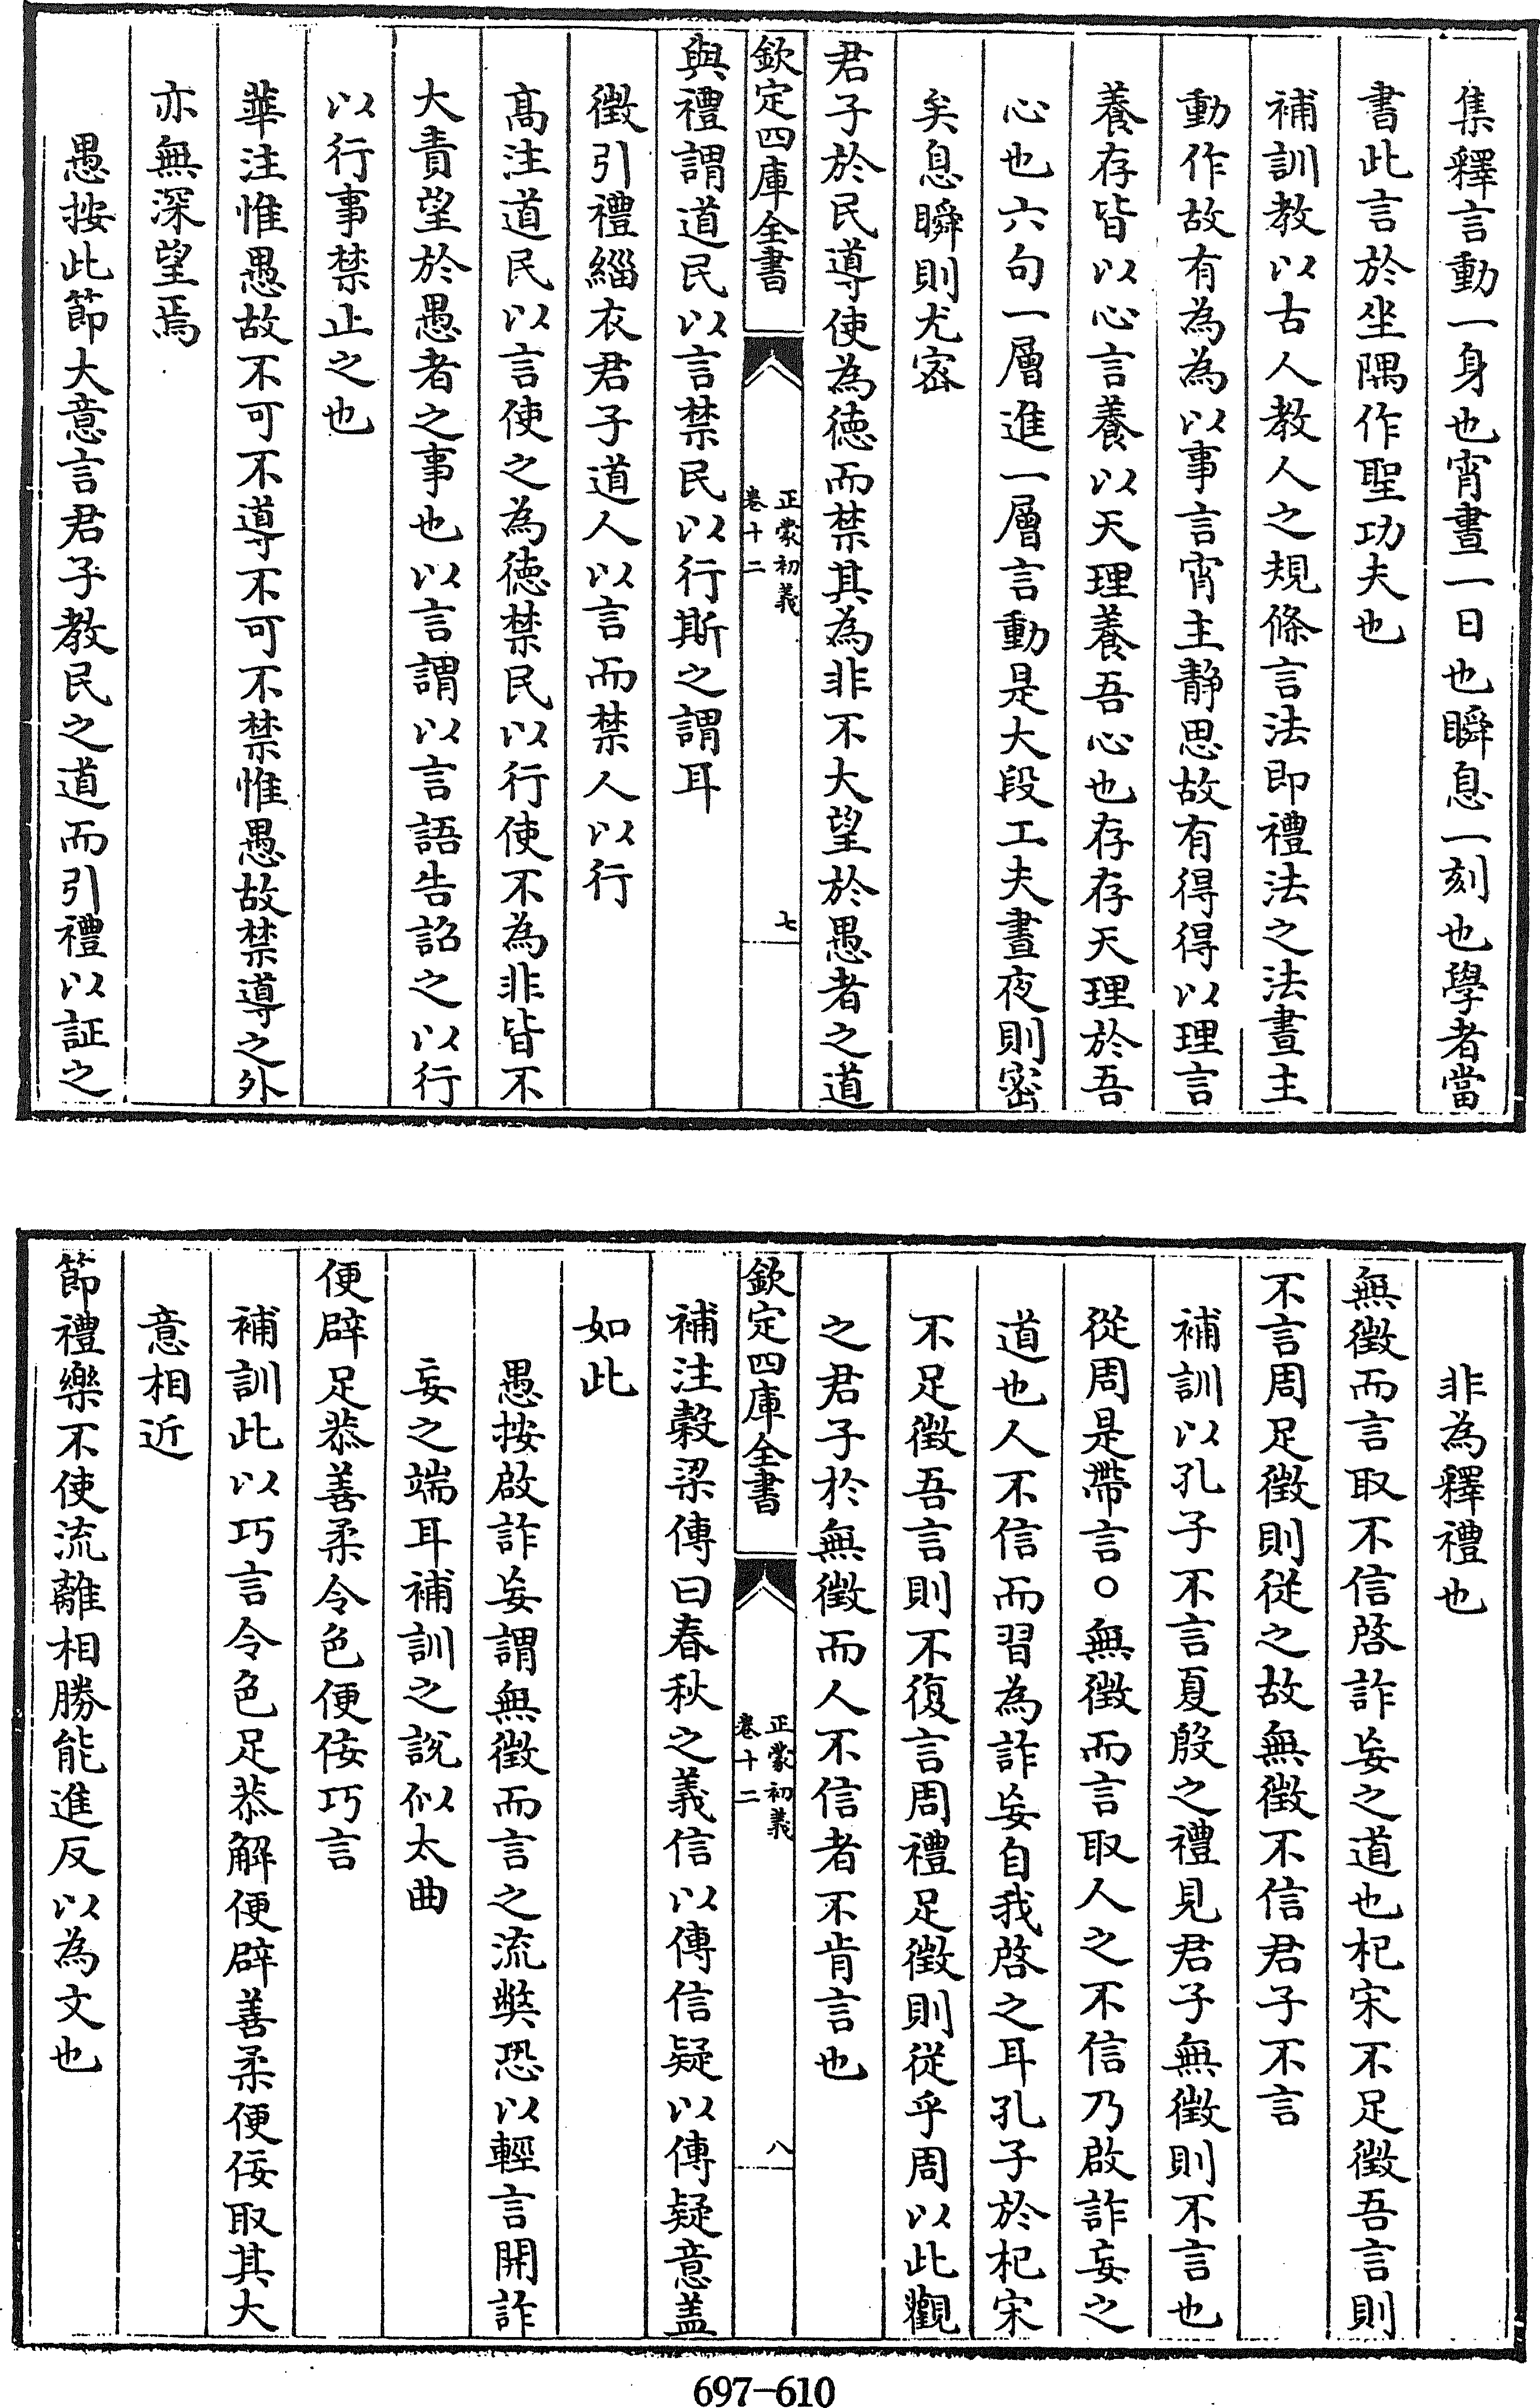 集釋言動一身也宵晝一日也瞬息一刻也學者當
書此言於坐隅作聖功夫也
補訓教以古人教人之規條言法即禮法之法晝主
動作故有為為以事言宵主静思故有得得以理言
養存皆以心言養以天理養吾心也存存天理於吾
心也六句一層進一層言動是大段工夫晝夜則密
矣息瞬則尤密
君子於民導使為徳而禁其為非不大望於愚者之道
欽定四庫全書
正蒙初義
卷十二
七
與禮謂道民以言禁民以行斯之謂耳
徴引禮緇衣君子道人以言而禁人以行
髙注道民以言使之為徳禁民以行使不為非皆不
大責望於愚者之事也以言謂以言語告詔之以行
以行事禁止之也
華注惟愚故不可不導不可不禁惟愚故禁導之外
亦無深望焉
愚按此節大意言君子教民之道而引禮以証之
非為釋禮也
無徴而言取不信啓詐妄之道也杞宋不足徴吾言則
不言周足徴則從之故無徴不信君子不言
補訓以孔子不言夏殷之禮見君子無徴則不言也
從周是帶言○無徴而言取人之不信乃啟詐妄之
道也人不信而習為詐妄自我啓之耳孔子於杞宋
不足徴吾言則不復言周禮足徴則從乎周以此觀
之君子於無徴而人不信者不肯言也
欽定四庫全書
正蒙初義
卷十二
八
補注穀梁傳曰春秋之義信以傳信疑以傳疑意盖
如此
愚按啟詐妄謂無徴而言之流弊恐以輕言開詐
妄之端耳補訓之說似太曲
便辟足恭善柔令色便佞巧言
補訓此以巧言令色足恭解便辟善柔便佞取其大
意相近
節禮樂不使流離相勝能進反以為文也
697-610